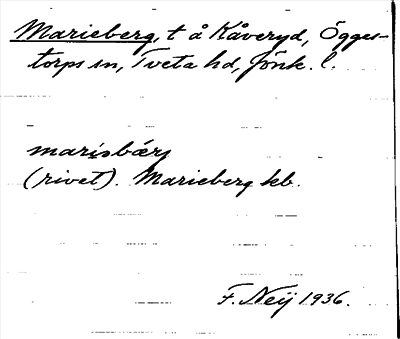 Marieberg, t å Kåveryd, Ögges-
torps sn, Tveta hd, Jönk. l.
marisbärj
(rivet). Marieberg kb.
F. Neij 1936.